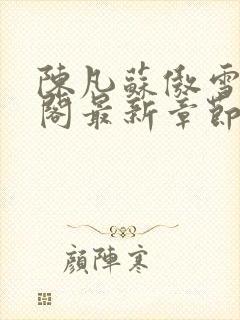 陳凡蘇傲雪
閣最新章節
顏陣寒